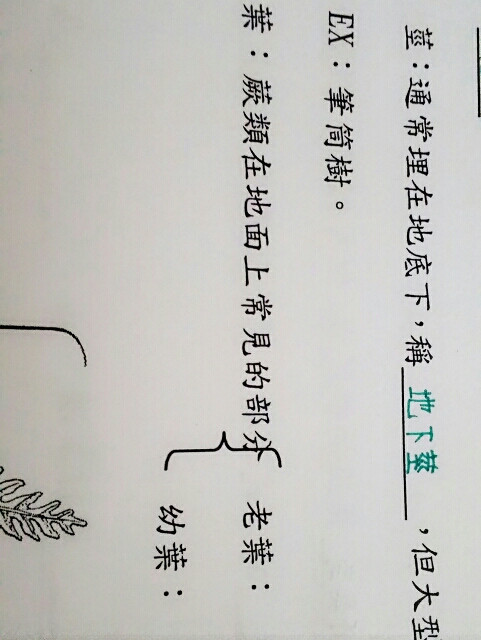 莖：通常埋在地底下，稱地下莖，但大型
EX：筆筒樹。
葉：蕨類在地面上常見的部分
老葉：
幼葉：